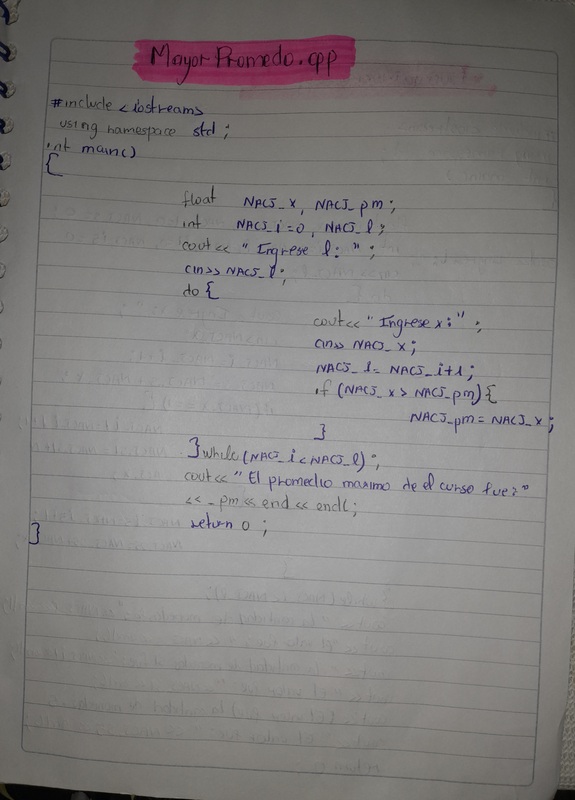 Mayor Promedo.cpp
#include <iostream>
using namespace std;
int main()
{
float NACJ_x, NACJ_pm;
int NACJ_i=0, NACJ_l;
cout<< "Ingrese l: ";
cin>> NACJ_l;
do {
cout<< "Ingrese x:";
cin>> NACJ_x;
NACJ_i= NACJ_i+1;
if (NACJ_x > NACJ_pm){
NACJ_pm = NACJ_x;
}
} while (NACJ_i < NACJ_l);
cout<< "El promedio maximo de el curso fue:"
<< _pm << end << endl;
return 0;
}